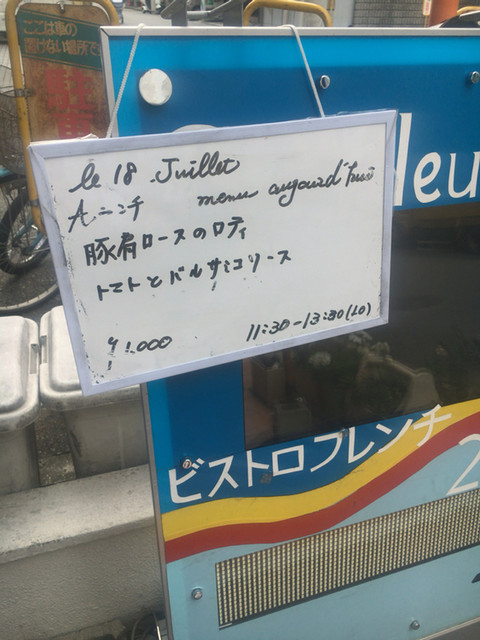 ここは車の
置けない場所で
leu
le 18 Juillet
Aランチ menu aujourd'hui
豚肩ロースのロティ
トマトとバルサミコソース
¥1,000 11:30-13:30(LO)
ビストロフレンチ
2